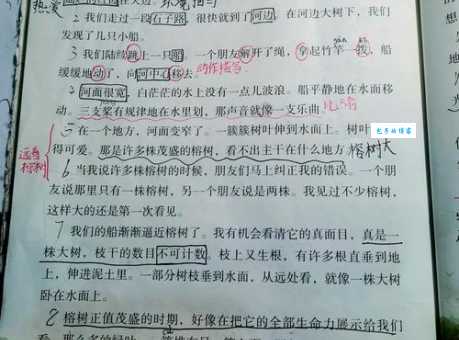 热爱
2 我们走过一段石子路，很快就到了河边。在河边大树下，我们
发现了几只小船。
3 我们陆续跳上一只船。一个朋友解开了绳，拿起竹竿一拨，船
缓缓地动了，向河中心移去。动作描写
河面很宽，白茫茫的水上没有一点儿波浪。船平静地在水面移
动。三支桨有规律地在水里划，那声音就像一支乐曲。
5 在一个地方，河面变窄了。一簇簇树叶伸到水面上。树叶
包子妈博客
得可爱。那是许多株茂盛的榕树，看不出主干在什么地方。榕树大
远看
榕树
6 当我说许多株榕树的时候，朋友们马上纠正我的错误。一个朋
友说那里只有一株榕树，另一个朋友说是两株。我见过不少榕树，
这样大的还是第一次看见。
7 我们的船渐渐逼近榕树了。我有机会看清它的真面目，真是一
株大树，枝干的数目不可计数。枝上又生根，有许多根直垂到地
上，伸进泥土里。一部分树枝垂到水面，从远处看，就像一株大树
卧在水面上。
8 榕树正值茂盛的时期，好像在把它的全部生命力展示给我们